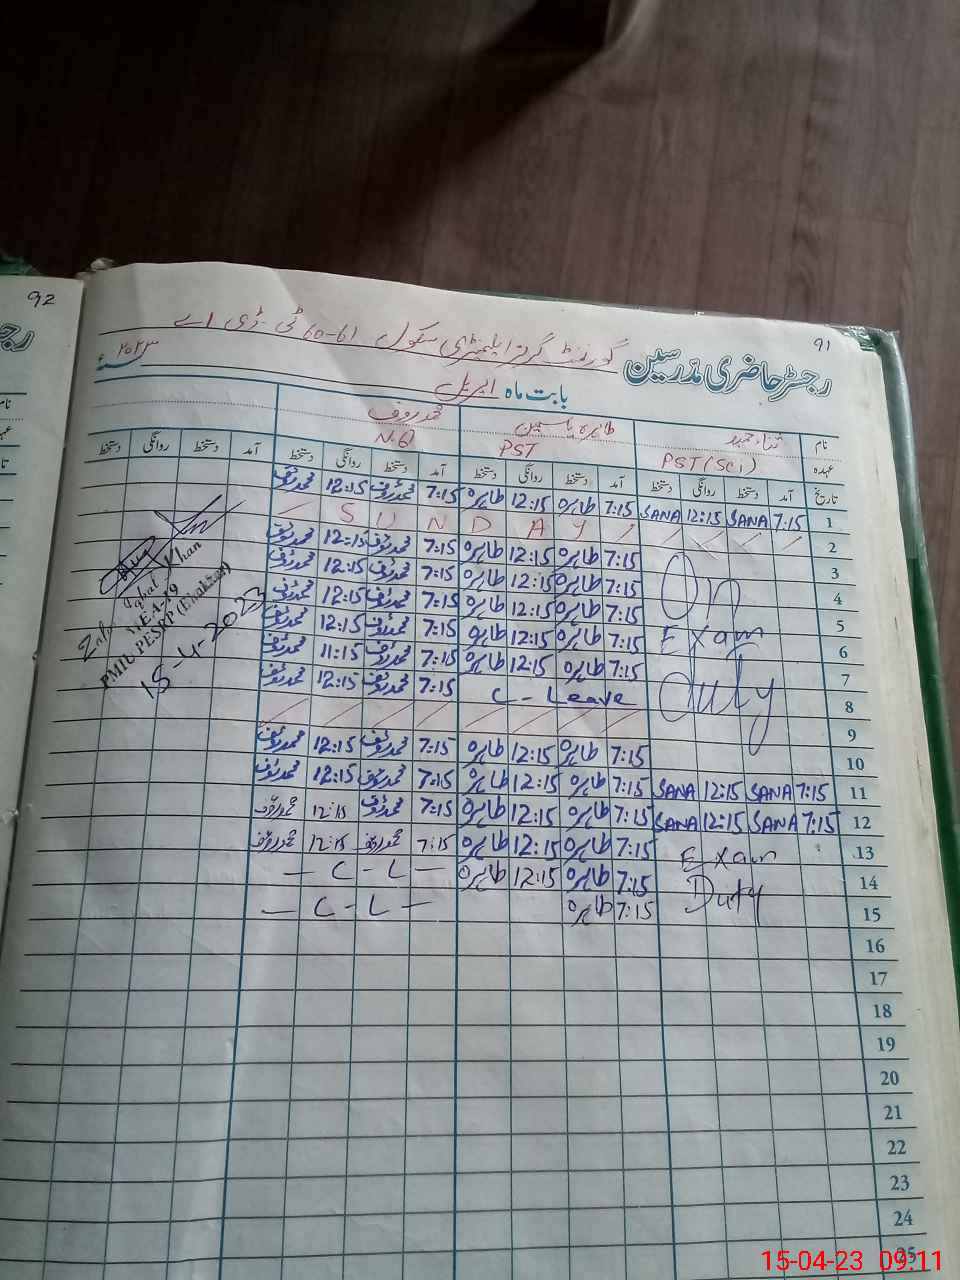 92
91
رجسٹر حاضری مدرسین
گورنمنٹ گرلز ایلیمنٹری سکول 60-61 ٹی ڈی اے
بابت ماہ اپریل ۲۰۲۳ء
نام ثناء حمید طاہرہ یاسمین محمد رؤف
عہدہ PST(Sci) PST N.Q
تاریخ آمد دستخط روانگی دستخط آمد دستخط روانگی دستخط آمد دستخط روانگی دستخط آمد دستخط روانگی دستخط
1 7:15 SANA 12:15 SANA 7:15 طاہرہ 12:15 طاہرہ 7:15 محمد رؤف 12:15 محمد رؤف
2 SUNDAY
3 7:15 طاہرہ 12:15 طاہرہ 7:15 محمد رؤف 12:15 محمد رؤف
4 On 7:15 طاہرہ 12:15 طاہرہ 7:15 محمد رؤف 12:15 محمد رؤف
5 7:15 طاہرہ 12:15 طاہرہ 7:15 محمد رؤف 12:15 محمد رؤف
6 Exam 7:15 طاہرہ 12:15 طاہرہ 7:15 محمد رؤف 12:15 محمد رؤف
7 7:15 طاہرہ 12:15 طاہرہ 7:15 محمد رؤف 11:15 محمد رؤف
8 duty C - Leave 7:15 محمد رؤف 12:15 محمد رؤف
9
10 7:15 طاہرہ 12:15 طاہرہ 7:15 محمد رؤف 12:15 محمد رؤف
11 7:15 SANA 12:15 SANA 7:15 طاہرہ 12:15 طاہرہ 7:15 محمد رؤف 12:15 محمد رؤف
12 7:15 SANA 12:15 SANA 7:15 طاہرہ 12:15 طاہرہ 7:15 محمد رؤف 12:15 محمد رؤف
13 Exam 7:15 طاہرہ 12:15 طاہرہ 7:15 محمد رؤف 12:15 محمد رؤف
14 Duty 7:15 طاہرہ 12:15 طاہرہ — C - L —
15 7:15 طاہرہ — C - L —
16
17
18
19
20
21
22
23
24
25
Zafar Iqbal Khan
MEA-19
PMIU PESRP (Bhakkar)
15-4-2023
15-04-23 09:11